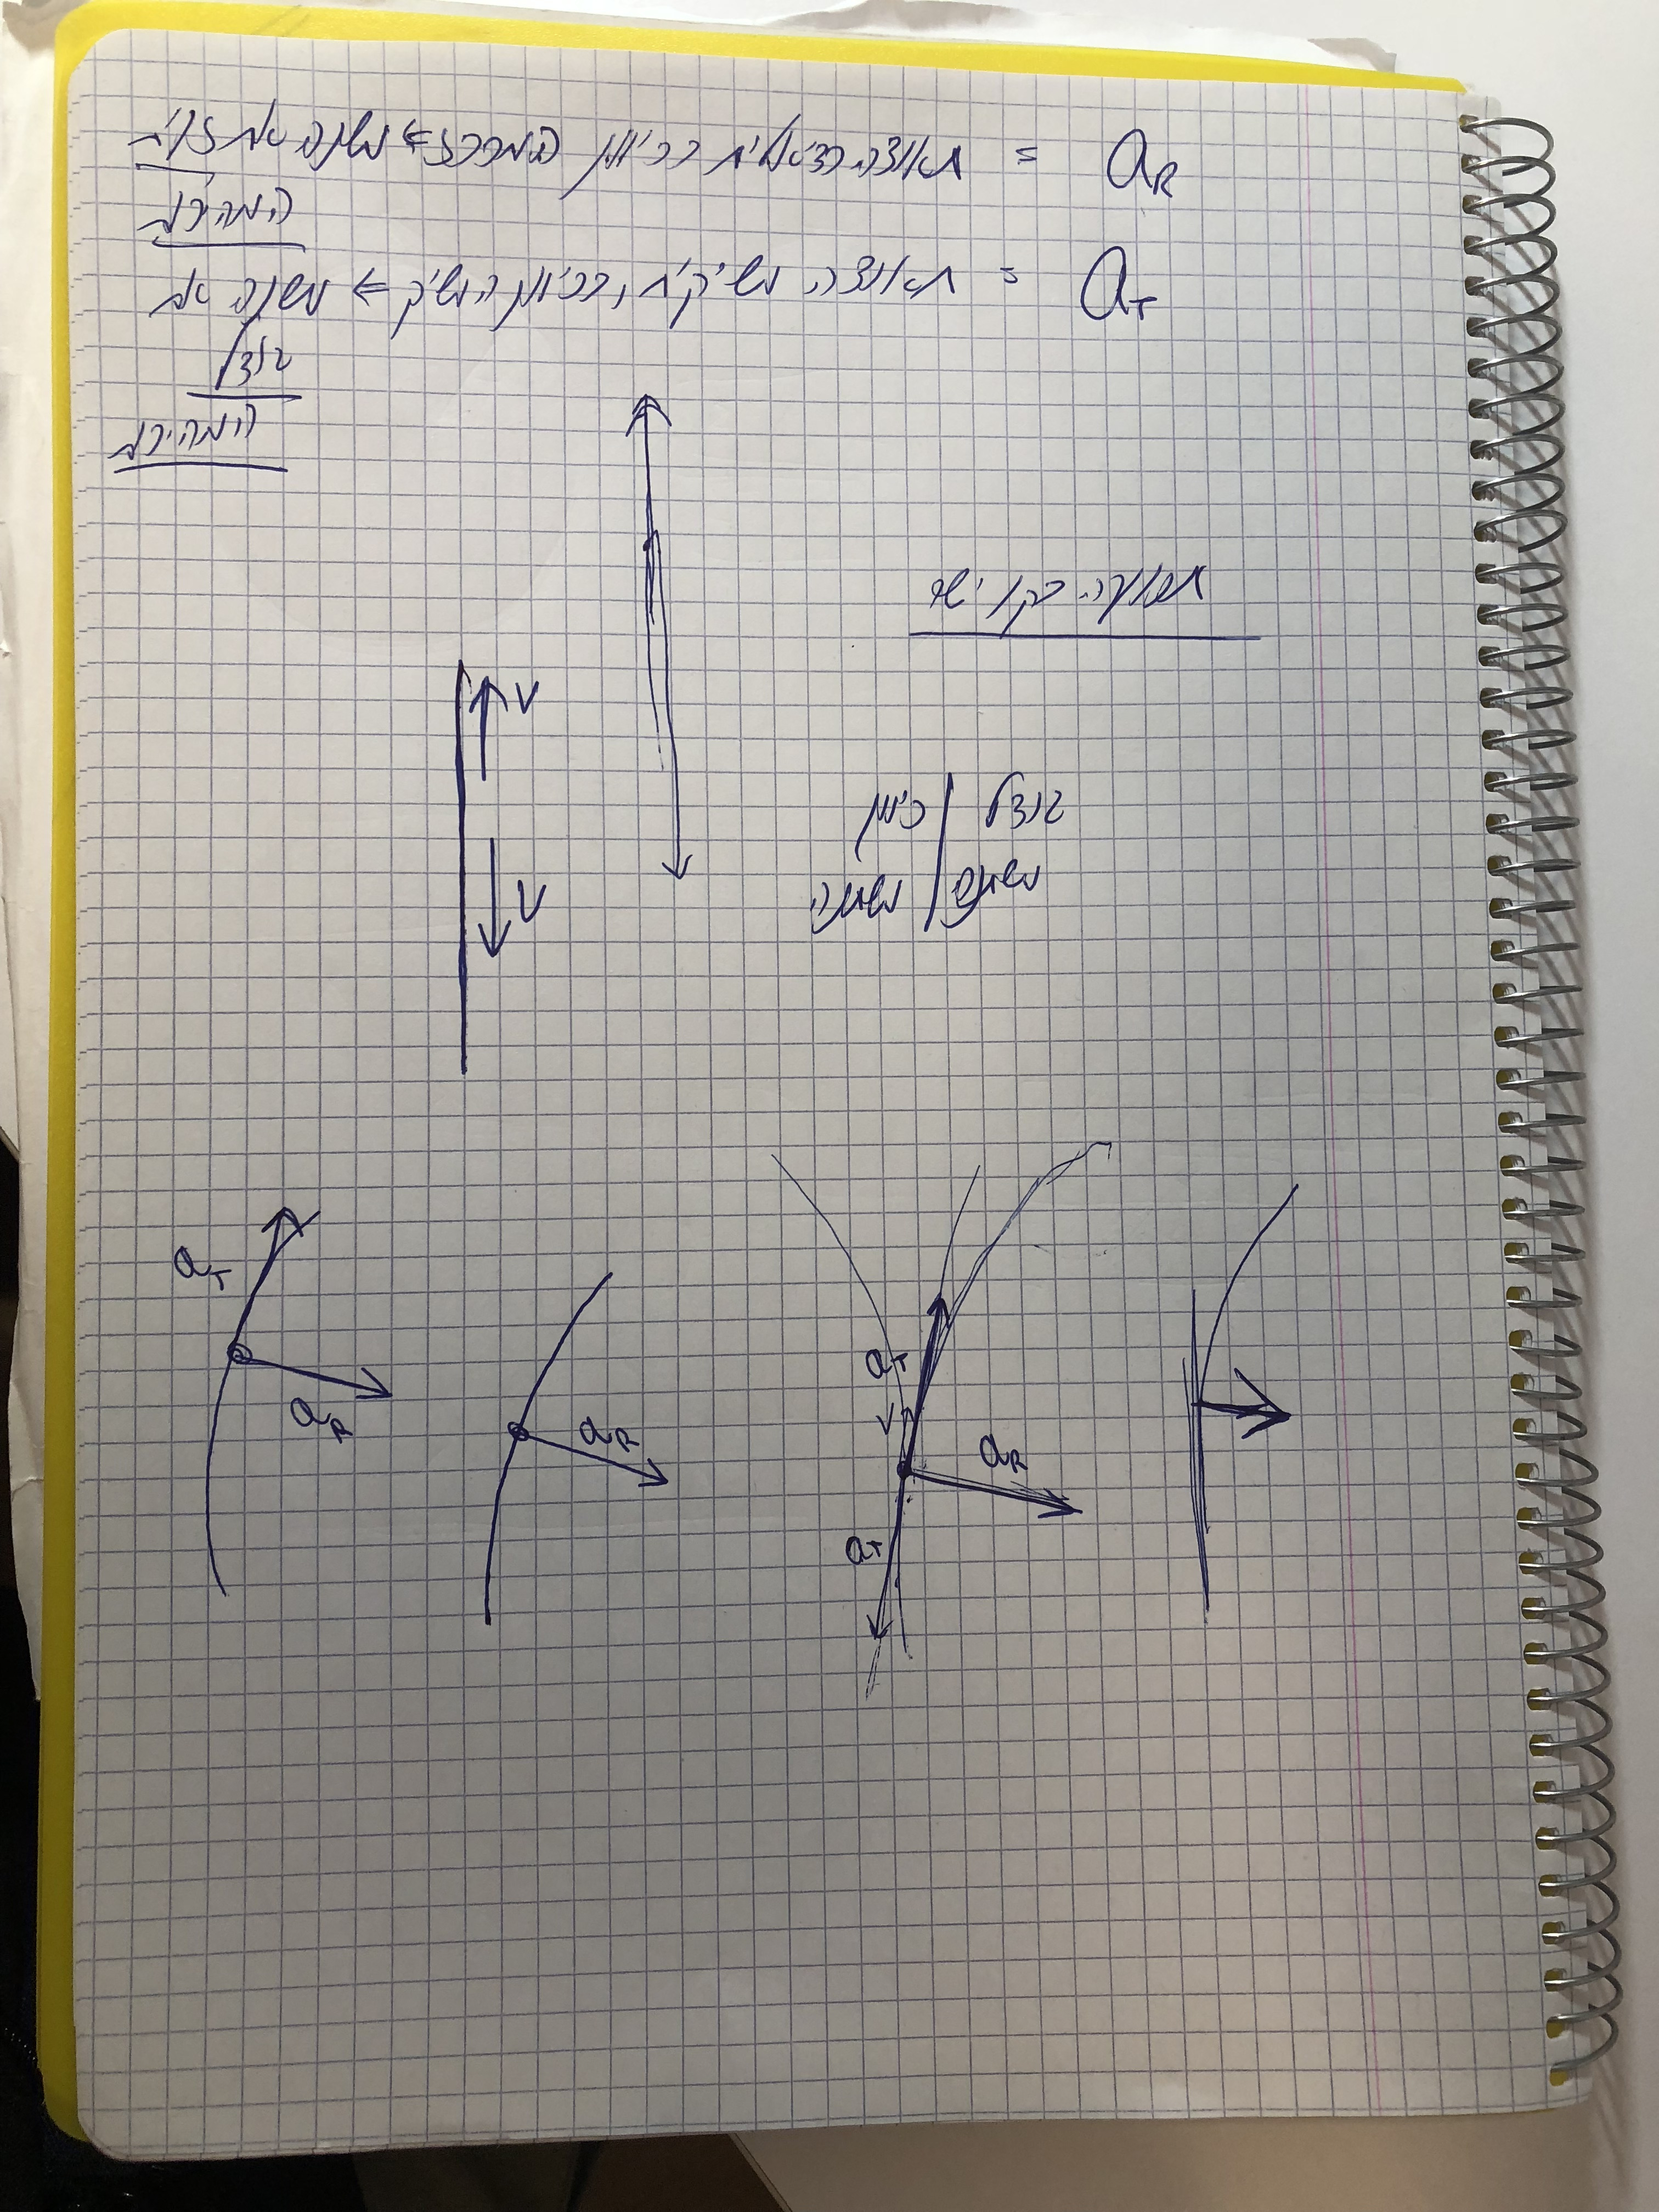 a_R = תאוצה רדיאלית בכיוון המרכז ← משנה את זוית
המהירות
a_T = תאוצה משיקית, בכיוון המשיק ← משנה את
גודל
המהירות
תנועה בקו ישר
V
V
גודל / כיוון
משתנה / משתנה
a_T
a_R
a_R
a_T
V
a_R
a_T